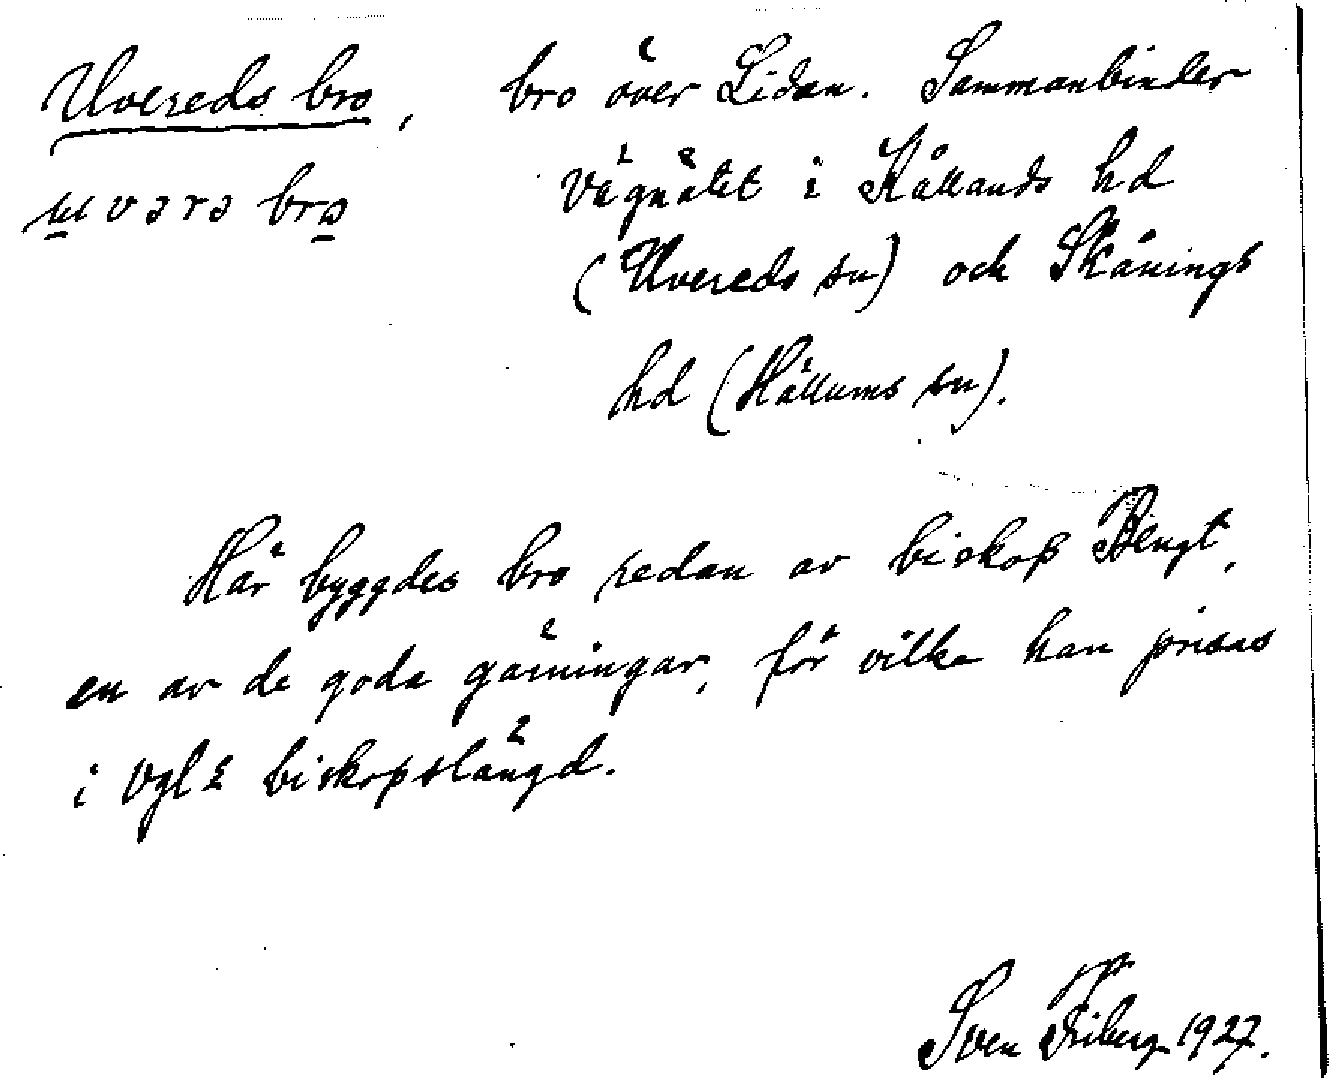 Uvereds bro, bro över Lidan. Sammanbinder
uvərə bro vägnätet i Kållands hd
(Uvereds sn) och Skånings
hd (Hällums sn).
Här byggdes bro redan av biskop Bengt,
en av de goda gärningar, för vilka han prisas
i Vgl 2 biskopslängd.
Sven Friberg 1927.